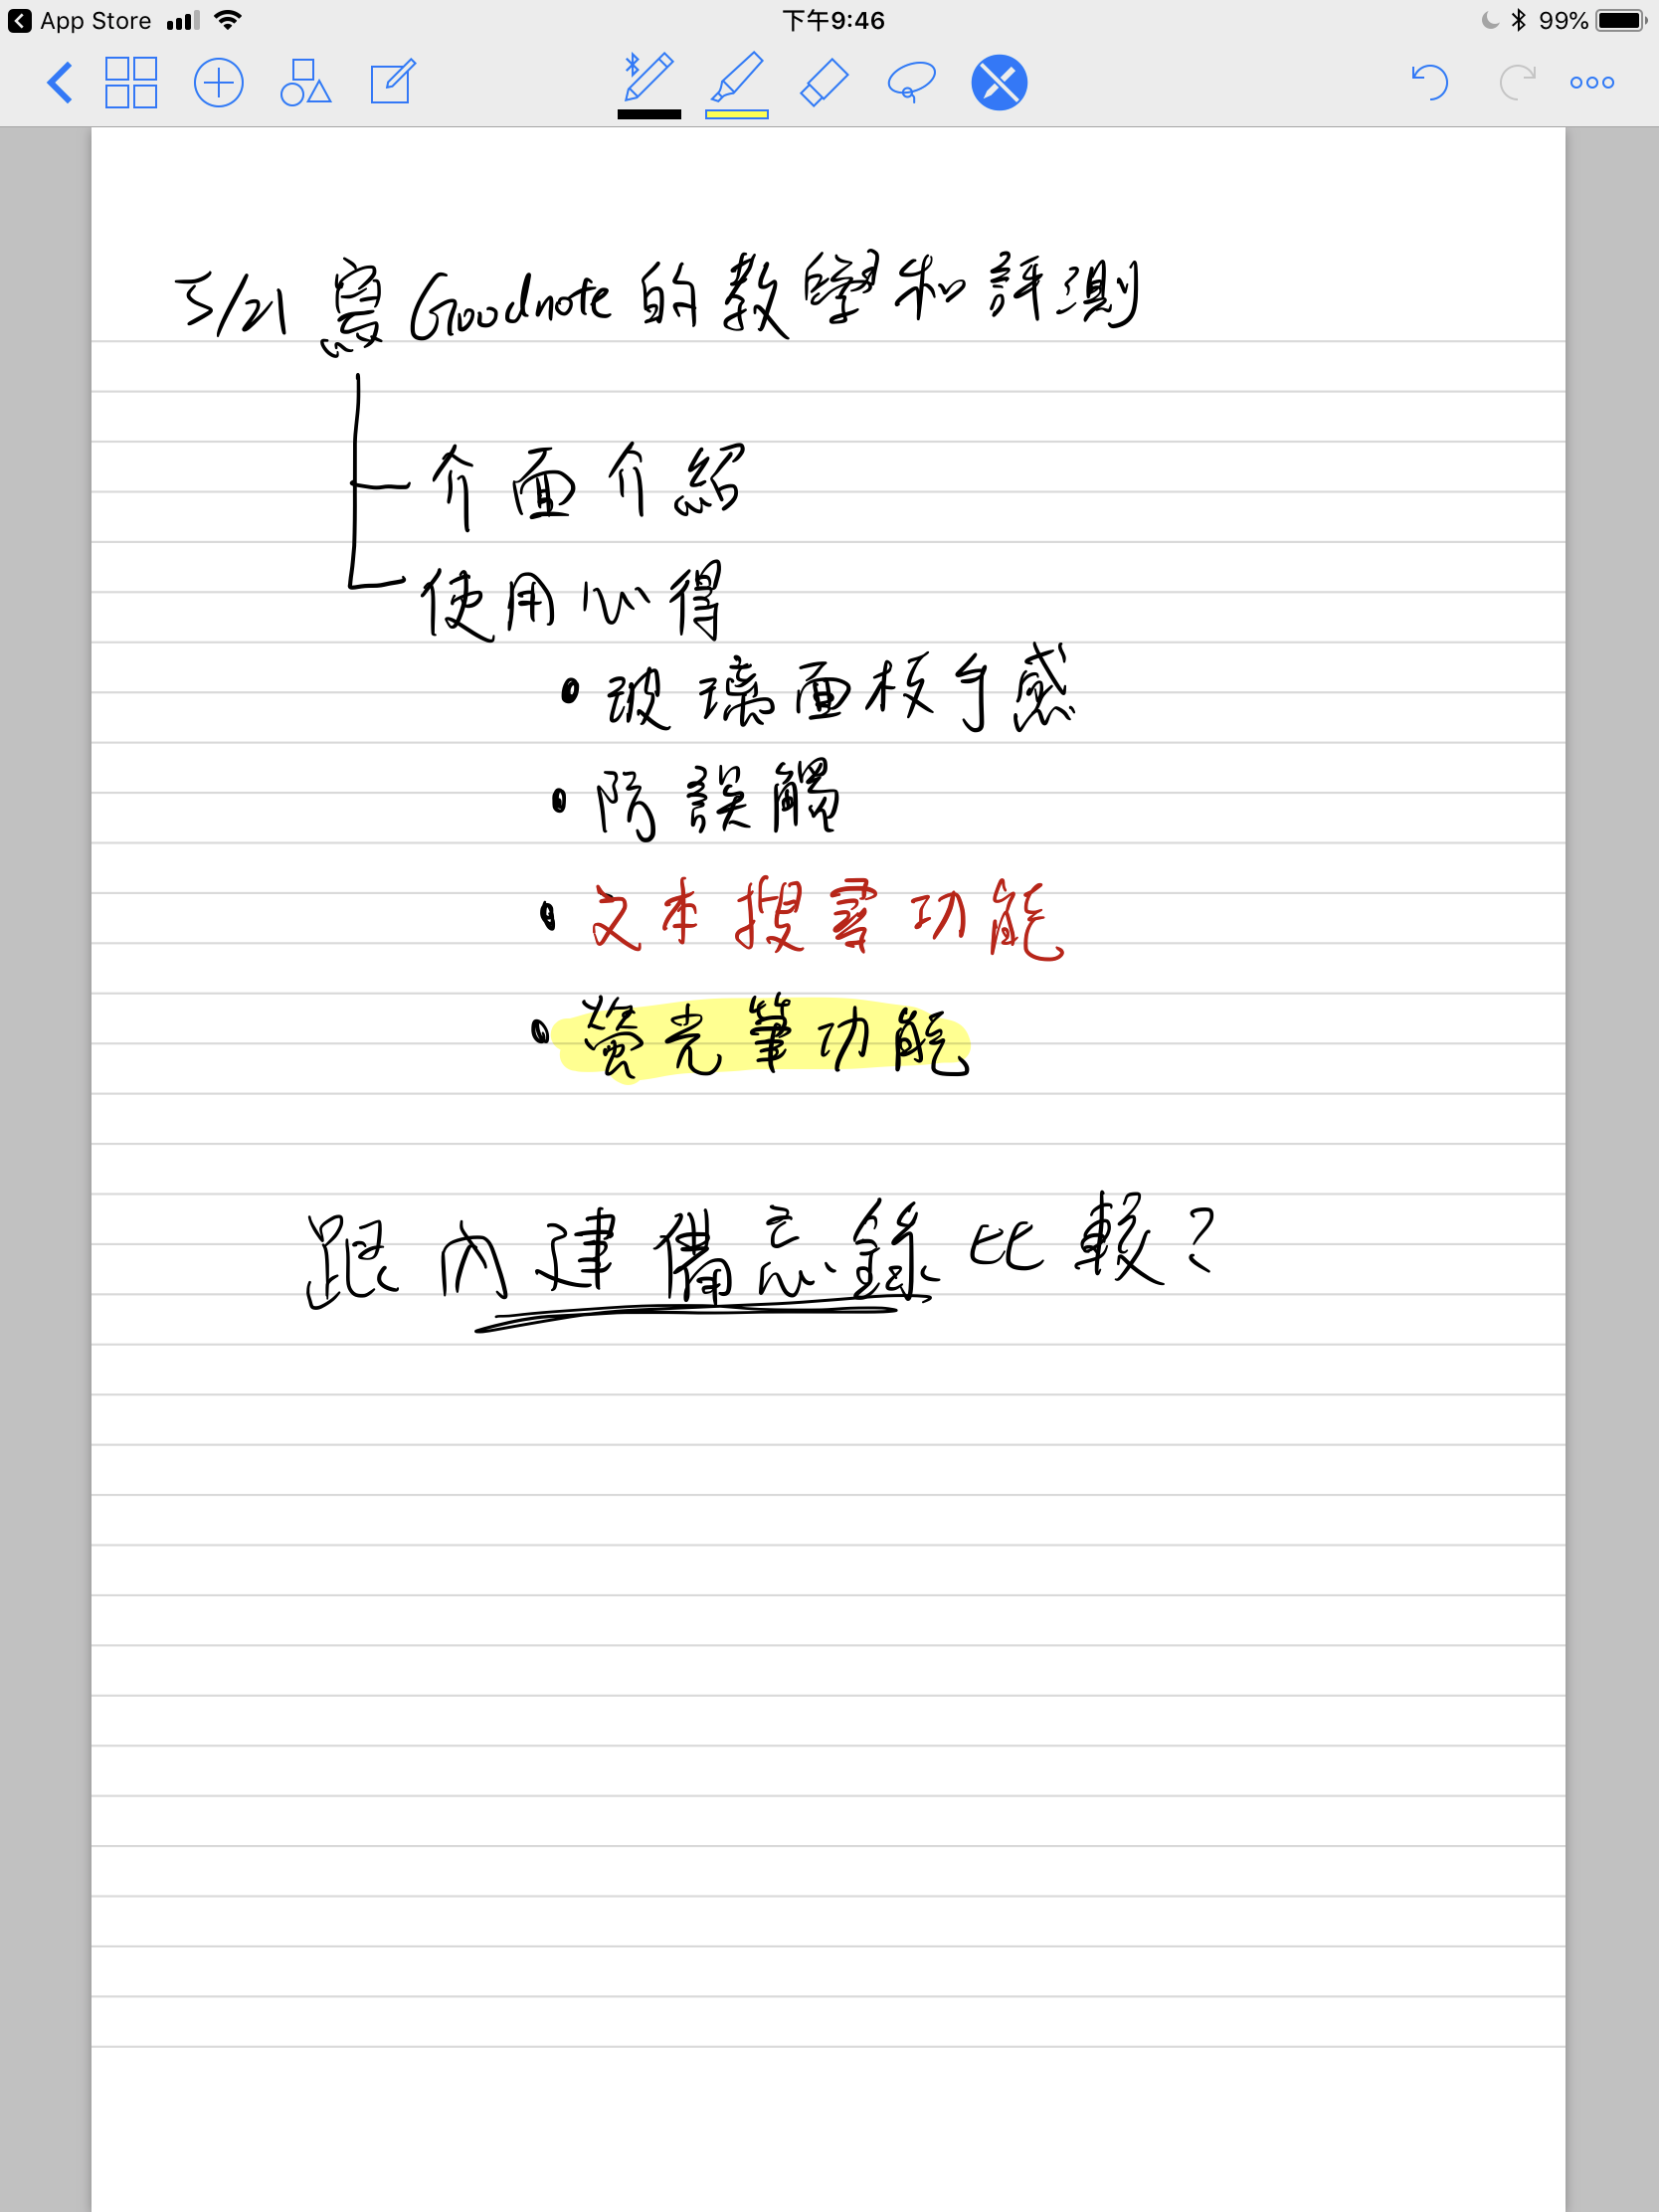 App Store 下午9:46 99%
5/21 寫Goodnote的教學和評測
介面介紹
使用心得
玻璃面板手感
防誤觸
文本搜尋功能
螢光筆功能
跟內建備忘錄比較?